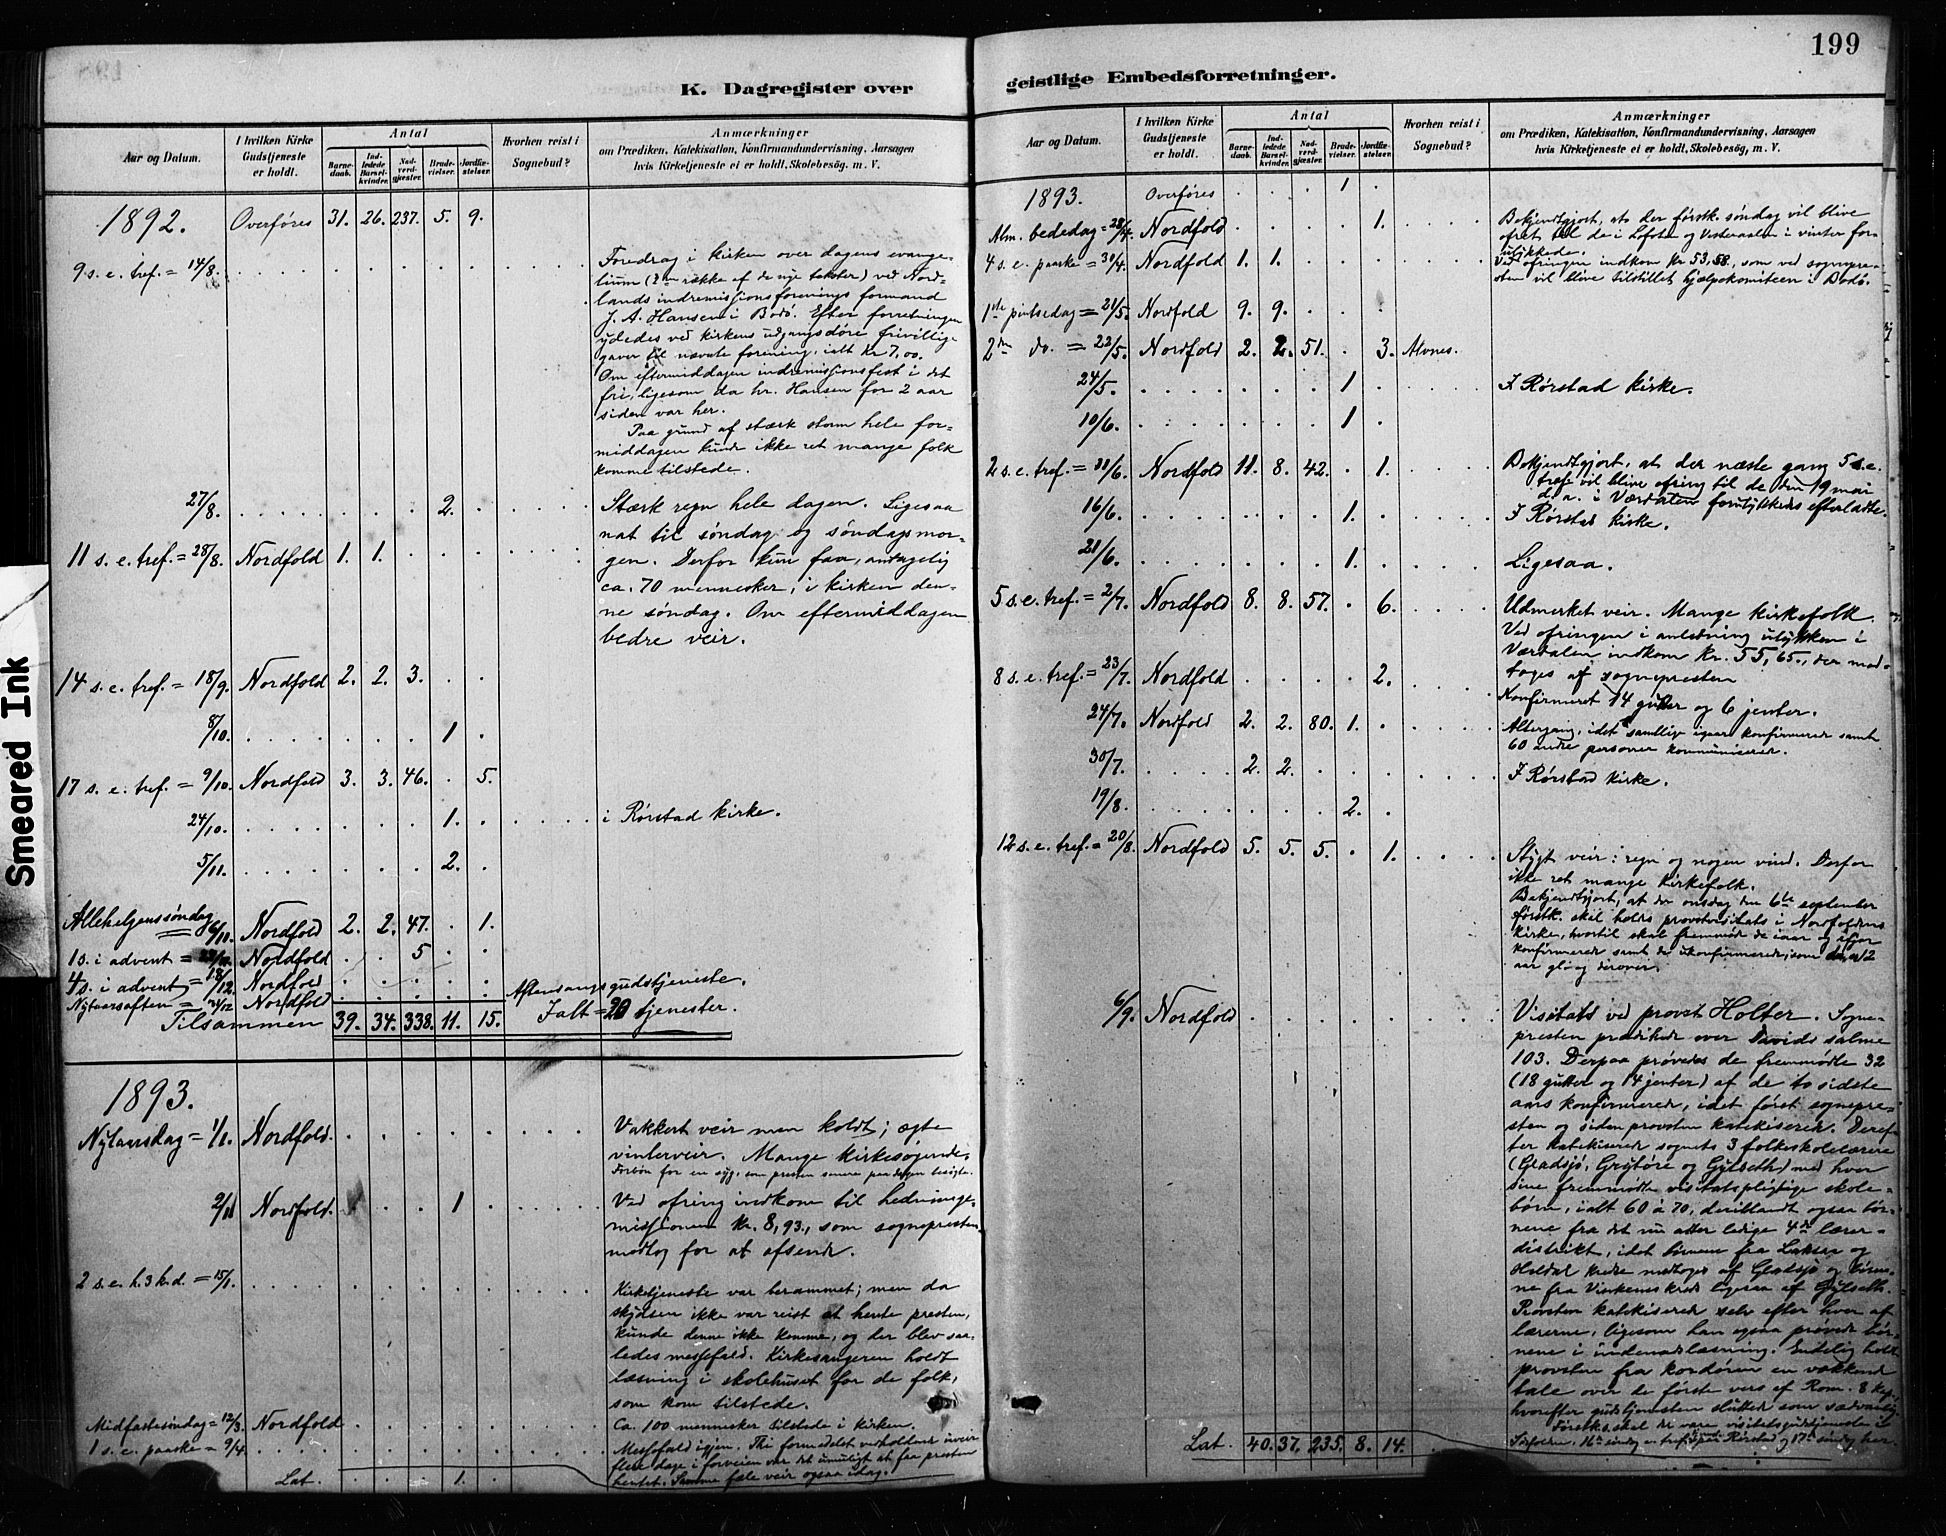 199
K. Dagregister over
geistlige Embedsforretninger.
Smeared Ink
Aar og Datum.
I hvilken Kirke Gudstjeneste er holdt.
Antal
Barnedaab.
Indledede Barselkvinder.
Nadverdgjæster.
Brudevielser.
Jordfæstelser.
Hvorhen reist i Sognebud?
Anmærkninger
om Prædiken, Katekisation, Konfirmandundervisning, Aarsagen
hvis Kirketjeneste ei er holdt, Skolebesög, m. V.
1892. Overføres 31. 26. 237. 5. 9.
9 s. e. tref. = 14/8.
Foredrag i kirken over dagens evange-
lium (2den række af de nye tekster) ved Nord-
lands indremissjonsforenings formand
J. A. Hansen i Bodø. Efter forretningen
ydedes ved kirkens udgangsdøre frivillige
gaver til nævnte forening, ialt kr 7,00.
Om eftermiddagen indremissjonsfest i det
fri, ligesom da hr. Hansen for 2 aar
siden var her.
Paa grund af stærk storm hele for-
middagen kunde ikke ret mange folk
komme tilstede.
27/8. 2. Stærk regn hele dagen. Ligesaa
nat til søndag og søndagsmor-
11 s. e. tref. = 28/8. Nordfold 1. 1. gen. Derfor kun faa, antagelig
ca. 70 mennesker, i kirken den-
ne søndag. Om eftermiddagen
bedre veir.
14 s. e. tref. = 18/9. Nordfold 2. 2. 3.
8/10. 1
17 s. e. tref. = 9/10. Nordfold 3. 3. 46. 5.
24/10. 1. i Rørstad kirke.
5/11. 2.
Allehelgenssøndag 6/10. Nordfold 2. 2. 47. 1.
1 s. i advent = Nordfold 5
4 s. i advent = 18/12. Nordfold
Nytaarsaften = 31/12 Nordfold Aftensangsgudstjeneste.
Tilsammen 39. 34. 338. 11. 15. Ialt = 20 tjenester.
1893.
Nytaarsdag = 1/1. Nordfold. Vakkert veir men koldt; ægte
vinterveir. Mange kirkesøgende.
Forbøn for en syg, som presten senere paa dagen besøgte.
2/1 Nordfold. 1 Ved ofring indkom til hedninge-
missjonen kr. 8,93, som sognepresten
modtog for at afsende.
2 s. e. h. 3 k. d. = 15/1. Kirketjeneste var berammet; men da
skydsen ikke var reist at hente presten,
kunde denne ikke komme, og der blev saa-
ledes messefald. Kirkesangeren holdt
læsning i skolehuset for de folk,
som kom tilstede.
Midfastesøndag = 12/3. Nordfold Ca. 100 mennesker tilstede i kirken.
1 s. e. paaske = 9/4. Messefald igjen. Thi formedelst vedholdende uveir
flere dage i forveien var det umuligt at faa presten
hentet. Samme fæle veir ogsaa idag.
Lat. 1.
Aar og Datum.
I hvilken Kirke Gudstjeneste er holdt.
Antal
Barnedaab.
Indledede Barselkvinder.
Nadverdgjæster.
Brudevielser.
Jordfæstelser.
Hvorhen reist i Sognebud?
Anmærkninger
om Prædiken, Katekisation, Konfirmandundervisning, Aarsagen
hvis Kirketjeneste ei er holdt, Skolebesög, m. V.
1893. Overføres 1
Alm. bededag = 28/4. Nordfold 1. Bekjendtgjort, at der førstk. søndag vil blive
ofret til de i Lofoten og Vesteraalen i vinter for-
ulykkede.
4 s. e. paaske = 30/4. Nordfold 1. 1. Ved ofringen indkom kr 53,58, som ved sognepre-
sten vil blive tilstillet hjælpekomiteen i Bodø.
1ste pintsedag = 21/5. Nordfold 9. 9.
2den do. = 22/5. Nordfold 2. 2. 51. 3. Alvnes.
24/5. 1 I Rørstad kirke.
10/6. 1
2 s. e. tref. = 11/6. Nordfold 11. 8. 42. 1. Bekjendtgjort, at der næste gang 5 s. e.
tref. vil blive ofring til de den 19 mai
d. a. i Værdalen forulykkedes efterladte.
16/6. 1. I Rørstad kirke.
21/6. 1. Ligesaa.
5 s. e. tref. = 2/7. Nordfold 8. 8. 57. 6. Udmerket veir. Mange kirkefolk.
Ved ofringen i anledning ulykken i
Værdalen indkom kr. 55,65, der mod-
toges af sognepresten
8 s. e. tref. = 23/7. Nordfold 2. Konfirmeret 14 gutter og 6 jenter.
24/7. Nordfold 2. 2. 80. 1. Altergang, idet samtlige igaar konfirmerede samt
60 andre personer kommuniserede.
30/7. 2. 2. I Rørstad kirke.
19/8. 2.
12 s. e. tref. = 20/8. Nordfold 5. 5. 5. 1. Stygt veir: regn og nogen vind. Derfor
ikke ret mange kirkefolk.
Bekjendtgjort, at der onsdag den 6te september
førstk. skal holdes provstevisitats i Nordfoldens
kirke, hvortil skal fremmøde de iaar og ifjor
konfirmerede samt de ukonfirmerede, som er 12
aar gl. og derover.
6/9. Nordfold Visitats ved provst Holter. Sogne-
presten prædikede over Davids salme
103. Derpaa prøvedes de fremmødte 32
(18 gutter og 14 jenter) af de to sidste
aars konfirmerede, idet først sognepre-
sten og siden provsten katekiserede. Deref-
ter katekiserede sognets 3 folkeskolelærere
(Gladsjø, Grytøre og Gylseth) med hver
sine fremmødte visitatspligtige skole-
børn, ialt 60 à 70, deriblandt ogsaa bør-
nene fra det nu atter ledige 4de lærer-
distrikt, idet børnene fra Laksaa og
Holdal kreds modtoges af Gladsjø og børne-
ne fra Vinkenes kreds ligesaa af Gylseth.
Provsten katekiserede selv efter hver af
lærerne, ligesom han ogsaa prøvede bør-
nene i indenadlæsning. Endelig holdt
provsten fra kordøren en vækkende
tale over de første vers af Rom. 8 kap.,
hvorefter gudstjenesten sluttede som sædvanlig.
Førstk. skal der være visitatsgudstjeneste i
Sørfolden, 16de søndag e. tref. paa Rørstad og 17de søndag her.
Lat. 40. 37. 235. 8. 14.